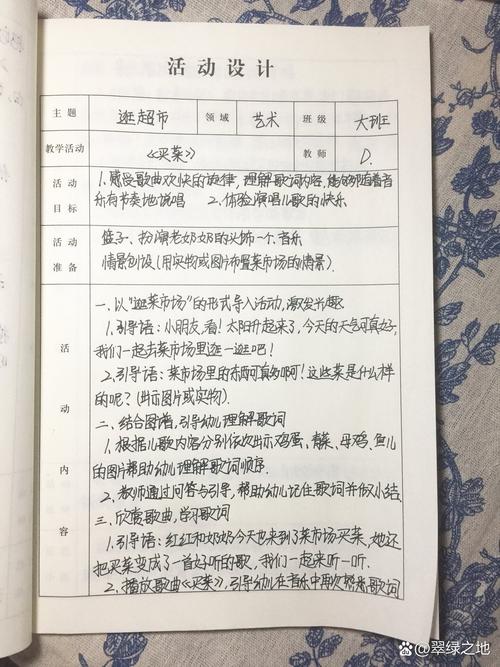 活动设计
主题 逛超市 领域 艺术 班级 大班
教学活动 《买菜》 教师 D.
活动目标
1.感受歌曲欢快的旋律,理解歌词内容,能够跟随音
乐有节奏地说唱 2.体验演唱儿歌的快乐
活动准备
篮子、扮演老奶奶的头饰一个、音乐
情景创设(用实物或图片布置菜市场的情景).
活动内容
一、以"逛菜市场"的形式导入活动,激发兴趣
1.引导语:小朋友,看!太阳升起来了,今天的天气可真好,
我们一起去菜市场里逛一逛吧!
2.引导语:菜市场里的东西可真多啊!这些菜是什么样
的呢?(出示图片或实物).
二、结合图谱,引导幼儿理解歌词
1.根据儿歌内容分别依次出示鸡蛋、青菜、母鸡、鱼儿
的图片帮助幼儿理解歌词顺序.
2.教师通过问答与引导,帮助幼儿记住歌词并做小结.
三、欣赏歌曲,学习歌词
1.引导语:红红和奶奶今天也来到了菜市场买菜,她还
把买菜变成了一首好听的歌,我们一起来听一听.
2.播放歌曲《买菜》,引导幼儿在音乐中再次熟悉歌词
百家号/翠绿之地